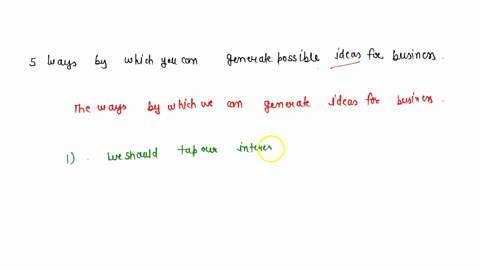 5 ways by which you can generate possible ideas for business.
The ways by which we can generate ideas for business.
1). We should tap our interes